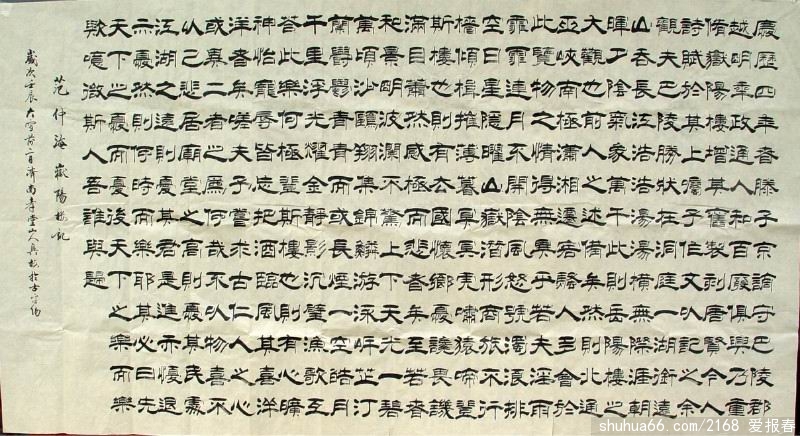 慶歷四年春滕子京謫守巴陵郡
越明年政通人和百廢俱興乃重
脩嶽陽樓增其舊製刻唐賢今人
詩賦於其上囑予作文以記之余
觀夫巴陵勝狀在洞庭一湖銜遠
山吞長江浩浩湯湯橫無際涯朝
暉夕陰氣象萬千此則岳陽樓之
大觀也前人之述備矣然則北通
巫峽南極瀟湘遷客騷人多會於
此覽物之情得無異乎若夫淫雨
霏霏連月不開陰風怒號濁浪排
空日星隱曜山嶽潛形商旅不行
檣傾楫摧薄暮冥冥虎嘯猿啼登
斯樓也則有去國懷鄉憂讒畏譏
滿目蕭然感極而悲者矣至若春
和景明波瀾不驚上下天光一碧
萬頃沙鷗翔集錦鱗游泳岸芷汀
蘭鬱鬱青青而或長煙一空皓月
千里浮光耀金靜影沉璧漁歌互
荅此樂何極登斯樓也則有心曠
神怡寵辱皆忘把酒臨風其喜洋
洋者矣嗟夫予嘗求古仁人之心
或異二者之為何哉不以物喜不
以己悲居廟堂之高則憂其民處
江湖之遠則憂其君是進亦憂退
亦憂然則何時而樂耶其必曰先
天下之憂而憂後天下之樂而樂
歟噫微斯人吾誰與歸
范仲淹嶽陽樓記
歲次壬辰大雪前二日濟南
shuhua66.com/2168 爱报春